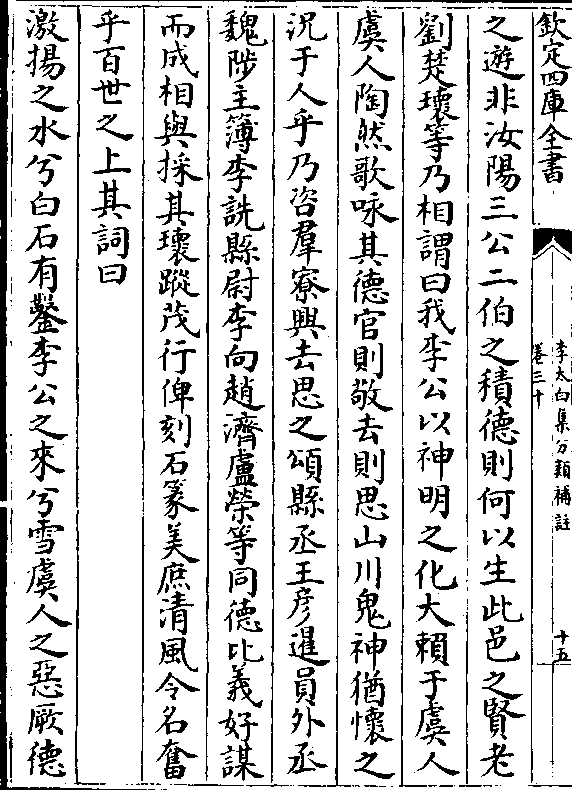 欽定四庫全書
李太白集分類補註
卷三十
十五
之遊非汝陽三公二伯之積德則何以生此邑之賢老
劉楚瓌等乃相謂曰我李公以神明之化大賴于虞人
虞人陶然歌咏其德官則敬去則思山川鬼神猶懷之
況于人乎乃咨羣寮興去思之頌縣丞王彦暹員外丞
魏陟主簿李詵縣尉李向趙濟盧榮等同德比義好謀
而成相與採其瓌蹤茂行俾刻石篆美庶清風令名奮
乎百世之上其詞曰
激揚之水兮白石有鑿李公之來兮雪虞人之惡厥德